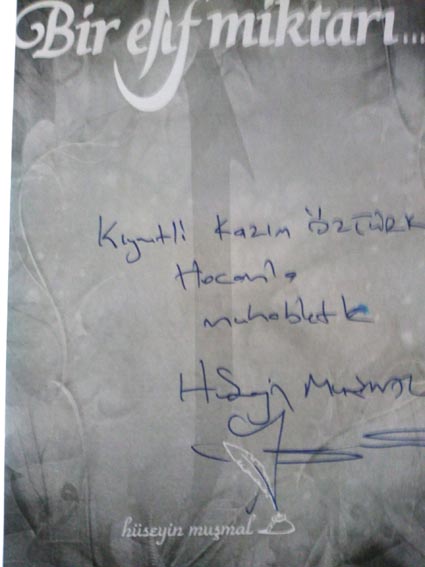 Bir elif miktarı...
Kıymetli Kazım ÖZTÜRK
Hocam'a
muhabbetle
Hüseyin Muşmal
hüseyin muşmal